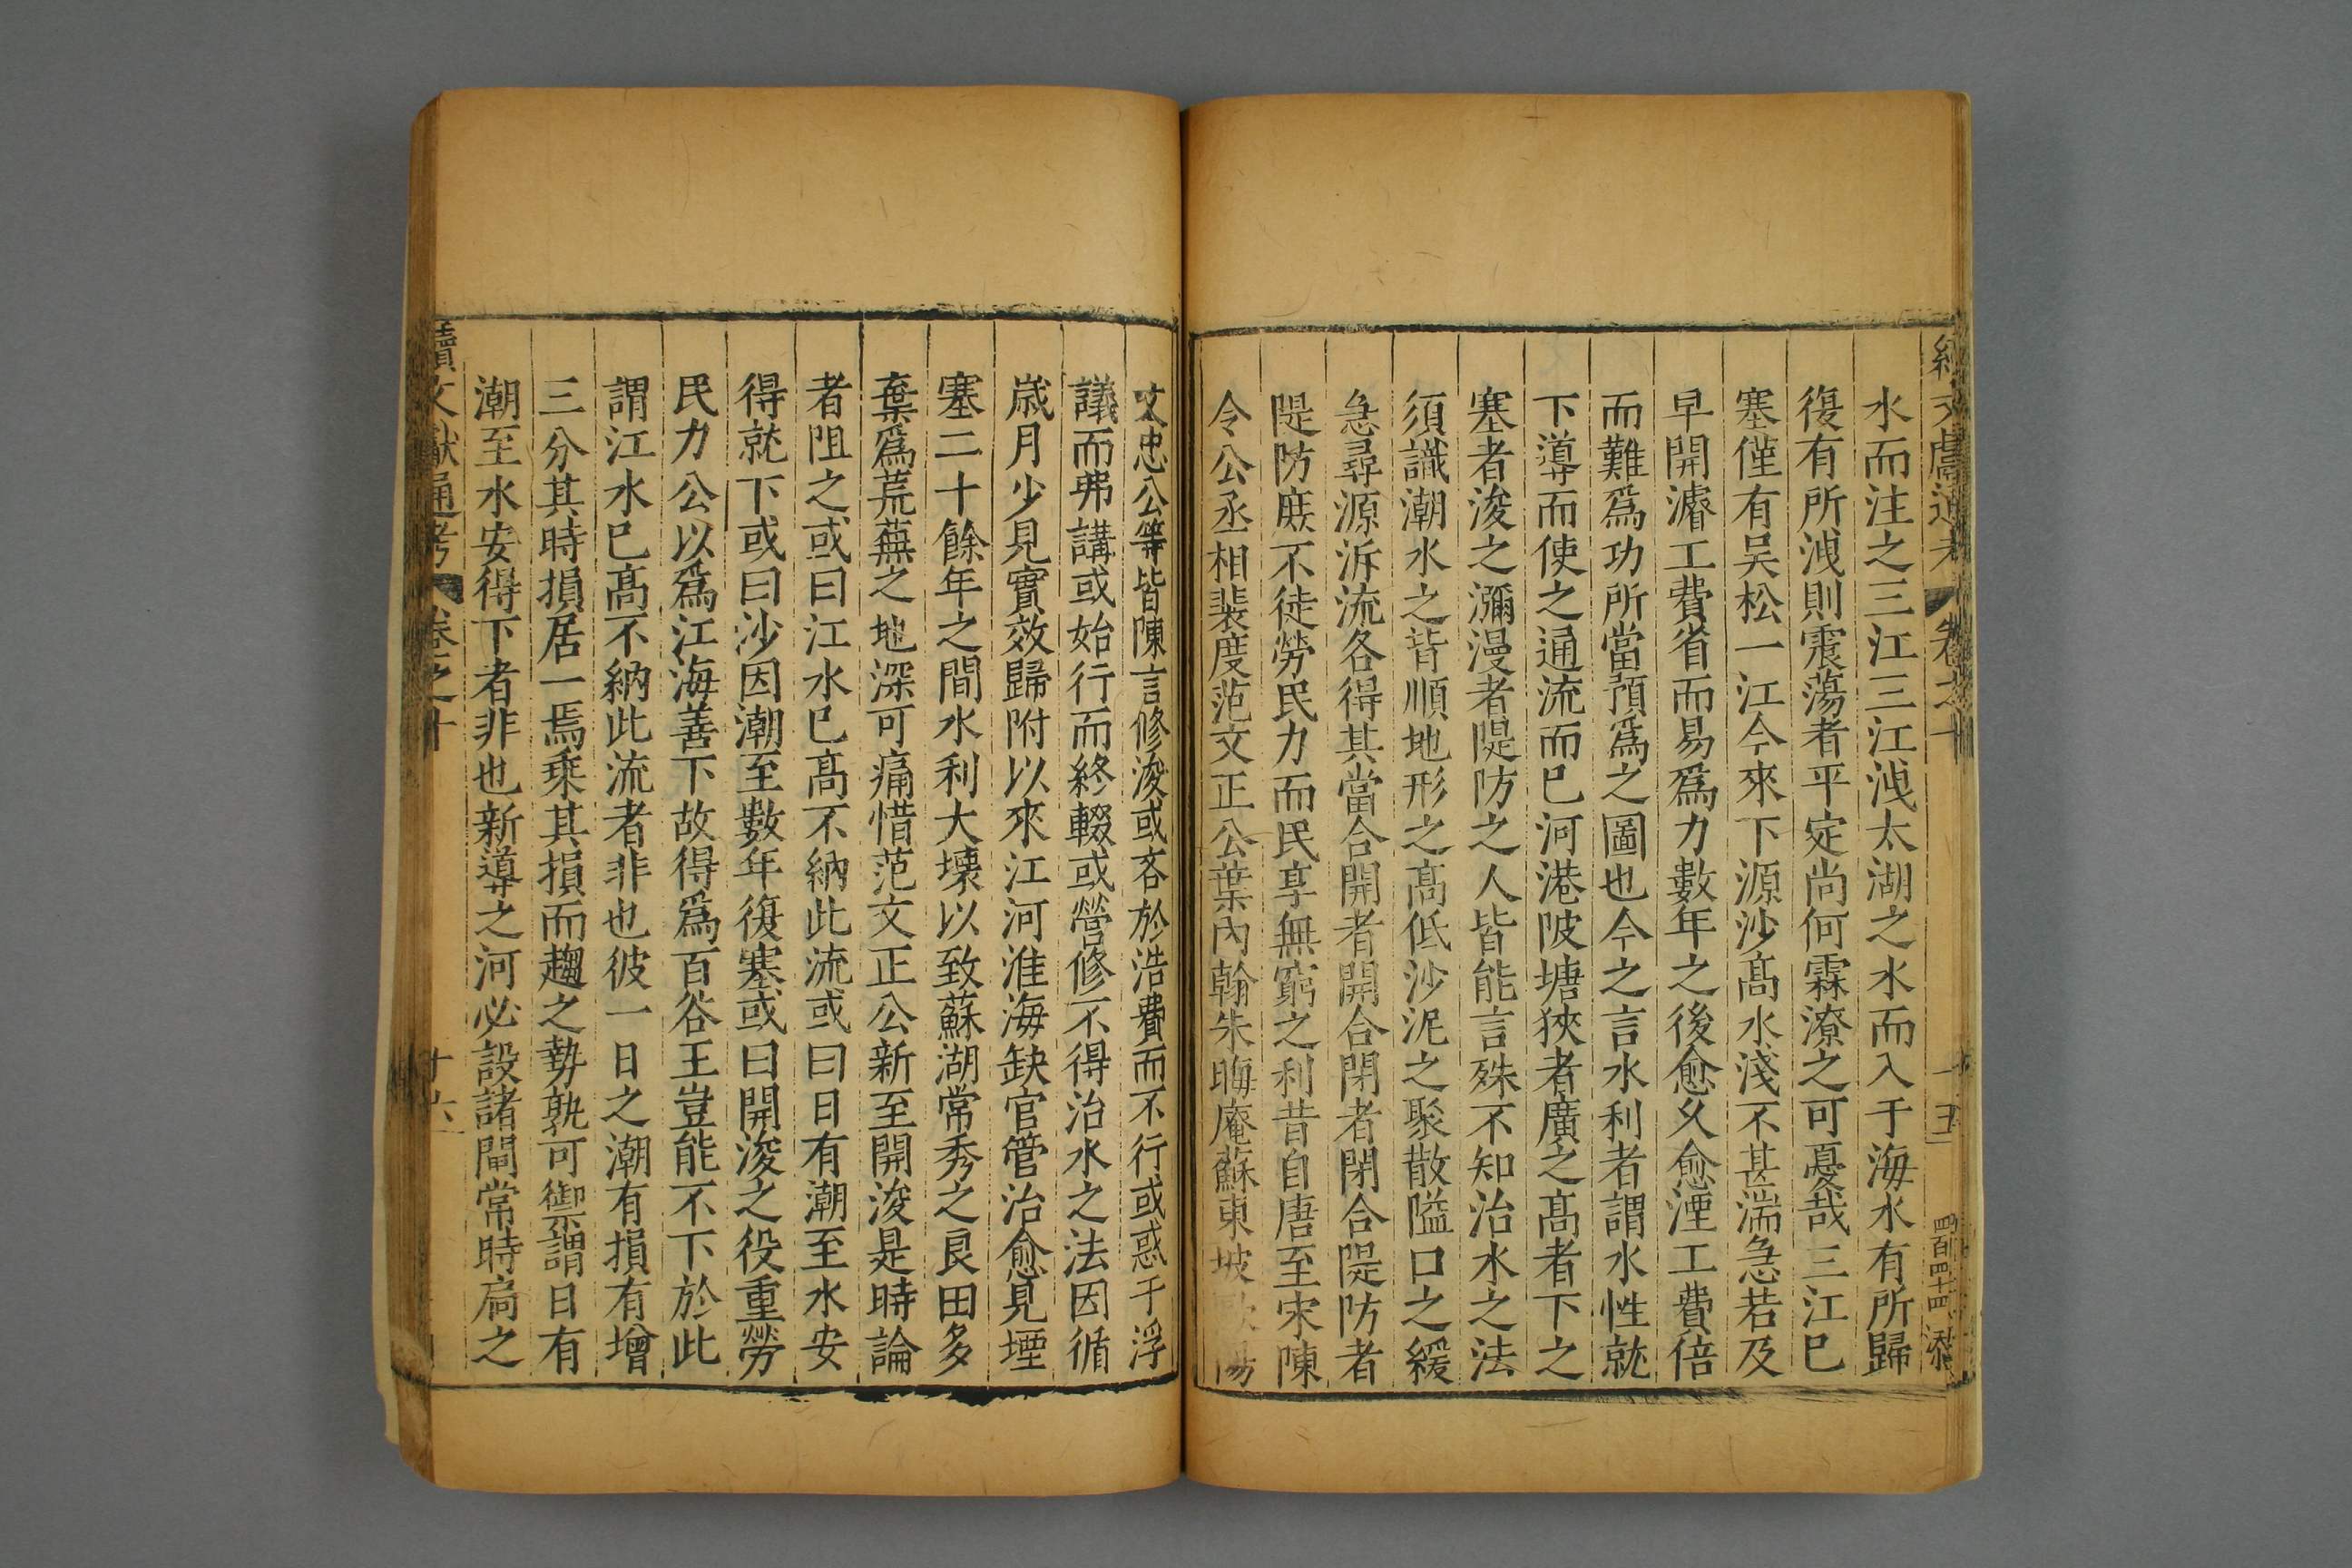 水而注之三江三江洩太湖之水而入于海水有所歸
復有所洩則震蕩者平定尚何霖潦之可憂哉三江已
塞僅有吳松一江今來下源沙髙水淺不甚湍急若及
早開濬工費省而易爲力數年之後愈久愈湮工費倍
而難爲功所當預爲之圖也今之言水利者謂水性就
下導而使之通流而已河港陂塘狹者廣之髙者下之
塞者浚之瀰漫者隄防之人皆能言殊不知治水之法
須識潮水之皆順地形之髙低沙泥之聚散隘口之緩
急尋源泝流各得其當合開者開合閉者閉合隄防者
隄防庶不徒勞民力而民享無窮之利昔自唐至宋陳
令公丞相裴度范文正公葉內翰朱晦庵蘇東坡歐陽
文忠公等皆陳言修浚或吝於浩費而不行或惑于浮
議而弗講或始行而終輟或營修不得治水之法因循
歲月少見實效歸附以來江河淮海缺官管治愈見堙
塞二十餘年之間水利大壊以致蘇湖常秀之良田多
棄爲荒蕪之地深可痛惜范文正公新至開浚是時論
者阻之或曰江水已髙不納此流或曰日有潮至水安
得就下或曰沙因潮至數年復塞或曰開浚之役重勞
民力公以爲江海善下故得爲百谷王豈能不下於此
謂江水已髙不納此流者非也彼一日之潮有損有增
三分其時損居一焉乗其損而趨之勢孰可禦謂日有
潮至水安得下者非也新導之河必設諸閘常時扃之
續文獻通考 卷之十 十六